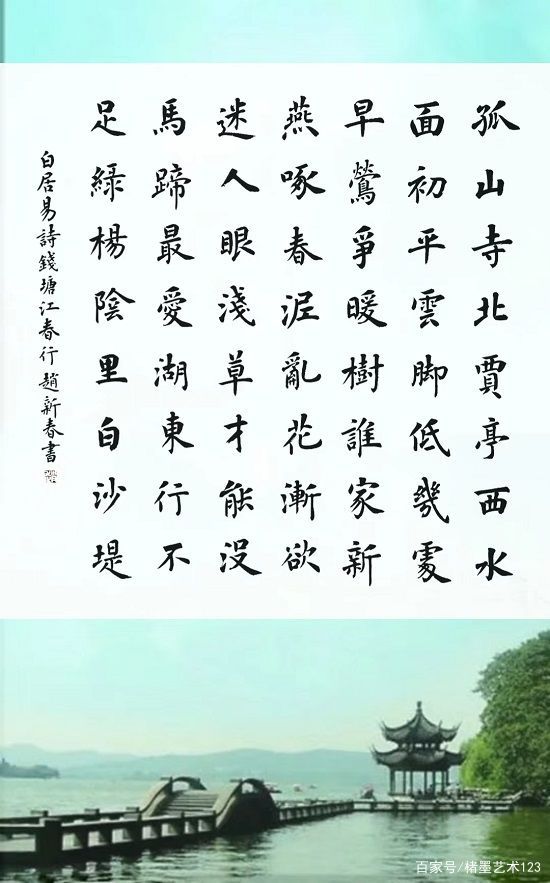 孤山寺北賈亭西水
面初平雲脚低幾處
早鶯爭暖樹誰家新
燕啄春泥亂花漸欲
迷人眼淺草才能没
馬蹄最愛湖東行不
足綠楊陰里白沙堤
白居易詩錢塘江春行趙新春書
百家号/楮墨艺术123